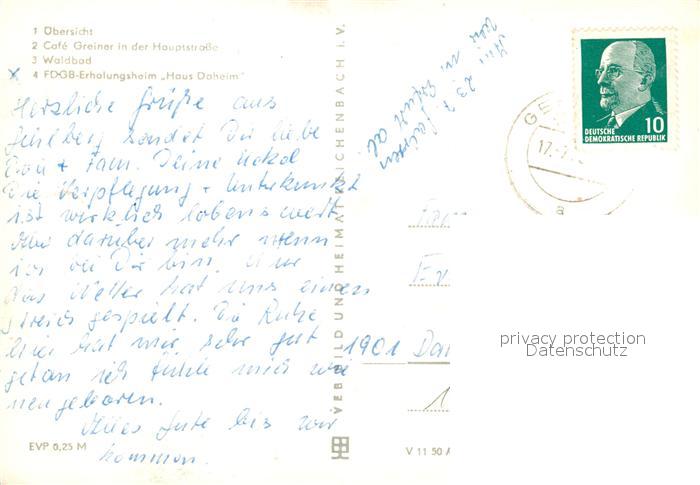 1 Übersicht
2 Café Greiner in der Hauptstraße
3 Waldbad
x 4 FDGB-Erholungsheim „Haus Daheim"
Herzliche Grüße aus
sendet Dir liebe
+ Fam. Deine
Die Verpflegung + Unterkunft
ist wirklich lobenswert
Aber darüber mehr wenn
ich bei Dir bin. Nur
das Wetter hat uns einen
Streich gespielt. Die Ruhe
hier hat mir sehr gut
getan ich fühle mich wie
neugeboren.
Alles Gute bis wir
kommen.
EVP 0,25 M
Am 23.7. fahren
wir n. Erfurt ab.
VEB BILD UND HEIMAT REICHENBACH I. V.
DEUTSCHE
DEMOKRATISCHE REPUBLIK 10
GE
17.-7.
a
Fam
1901
V 11 50 A
privacy protection
Datenschutz